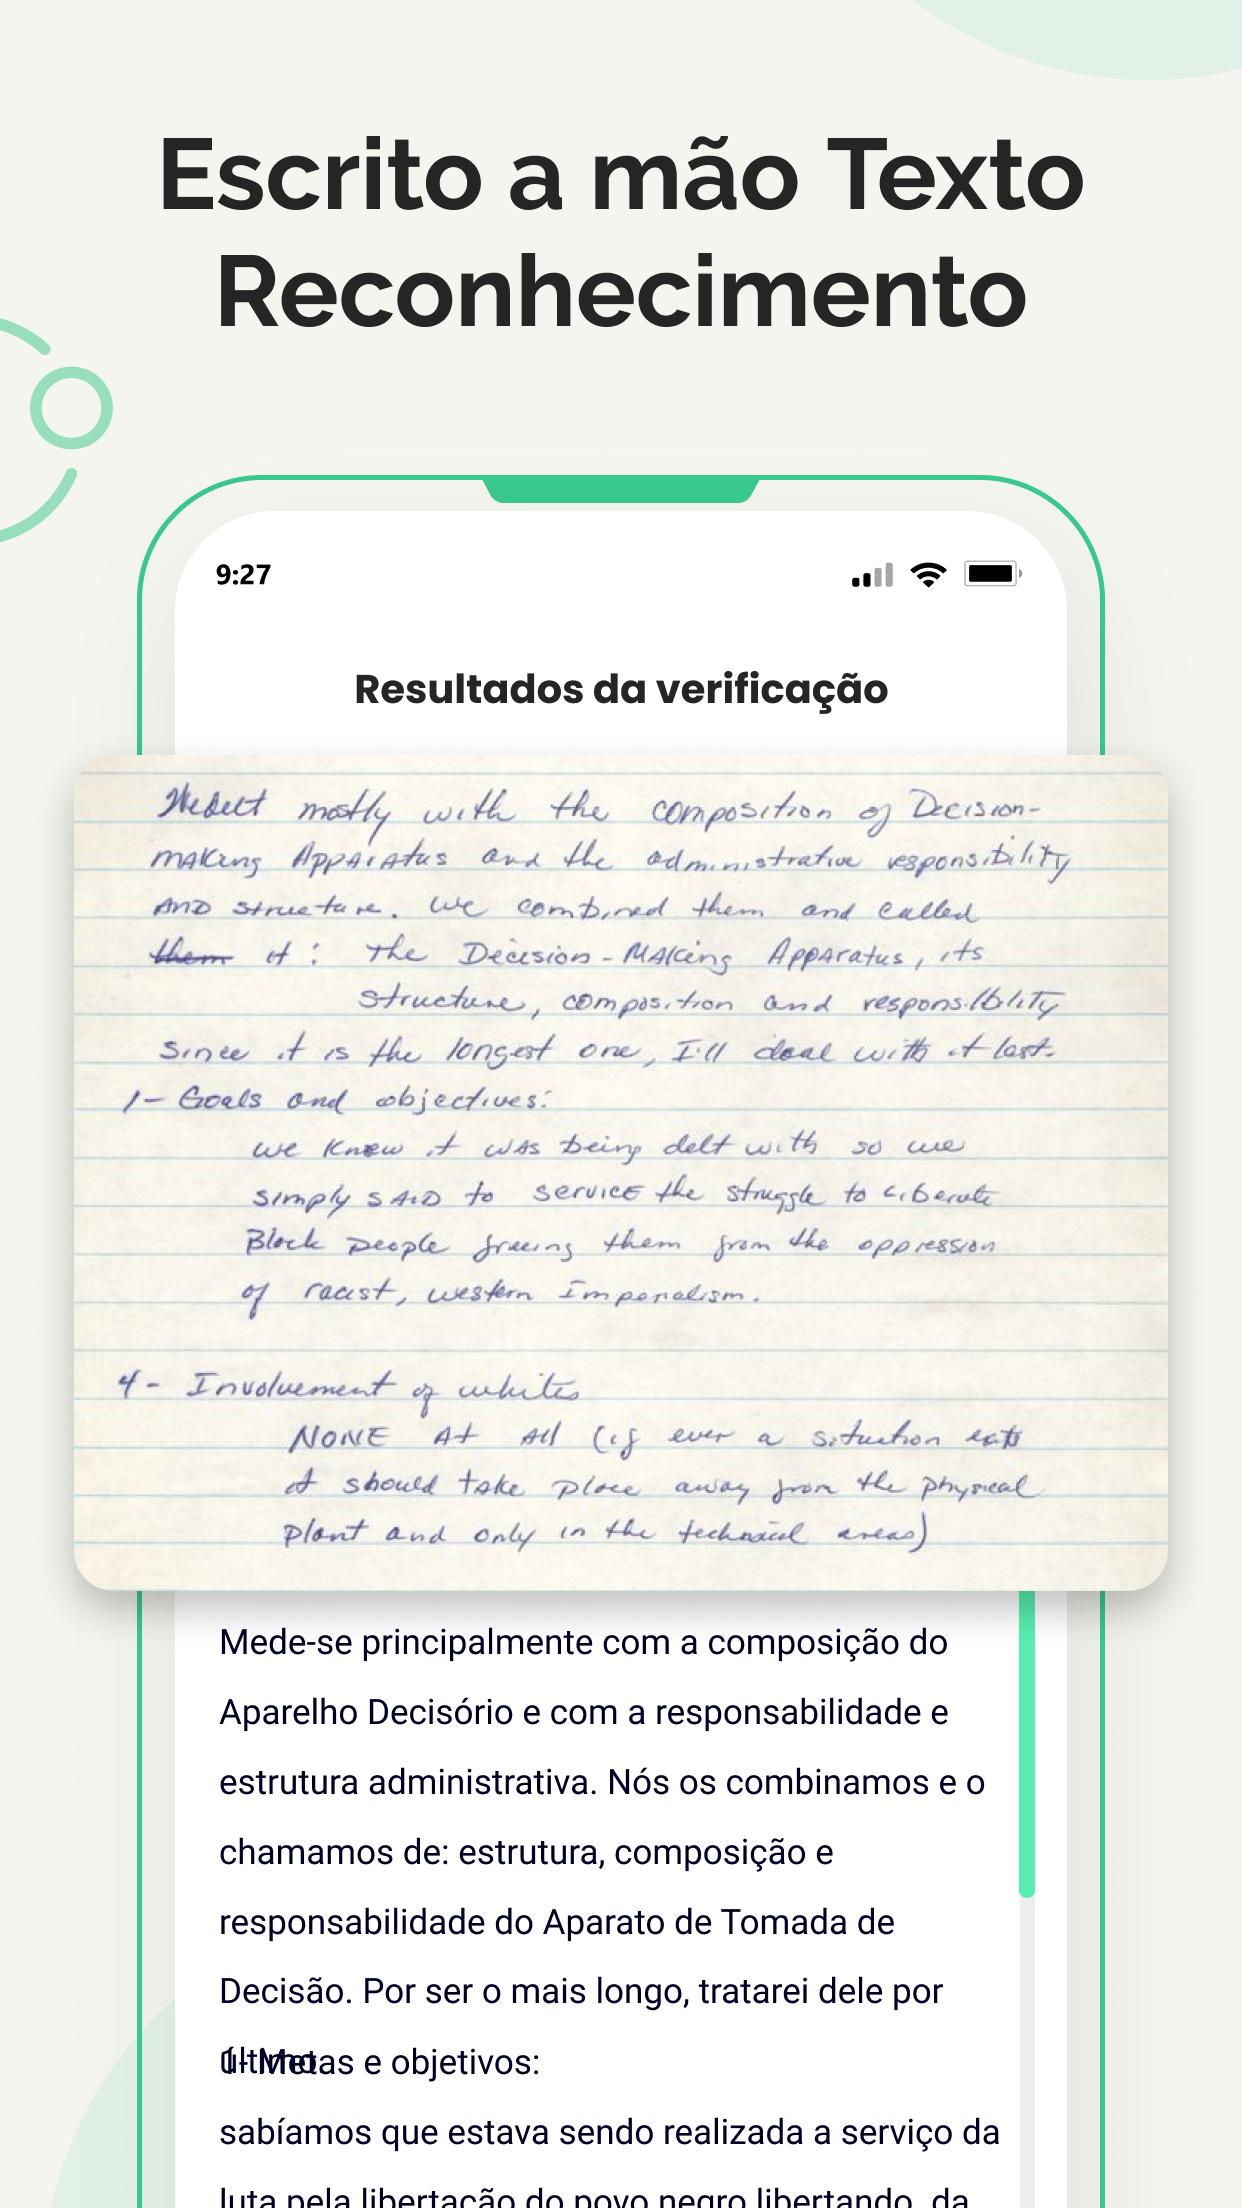 Escrito a mão Texto
Reconhecimento
9:27
Resultados da verificação
We delt mostly with the composition of Decision-
making Apparatus and the administrative responsibility
AND structure. We combined them and called
them it : The Decision-Making Apparatus, its
structure, composition and responsibility
Since it is the longest one, I'll deal with it last.
1- Goals and objectives:
we knew it was being delt with so we
simply SAID to service the struggle to liberate
Black people freeing them from the oppression
of racist, western Imperialism.
4- Involvement of whites
NONE At All (if ever a situation exists
it should take place away from the physical
plant and only in the technical areas)
Mede-se principalmente com a composição do
Aparelho Decisório e com a responsabilidade e
estrutura administrativa. Nós os combinamos e o
chamamos de: estrutura, composição e
responsabilidade do Aparato de Tomada de
Decisão. Por ser o mais longo, tratarei dele por
último.
1- Metas e objetivos:
sabíamos que estava sendo realizada a serviço da
luta pela libertação do povo negro libertando, da